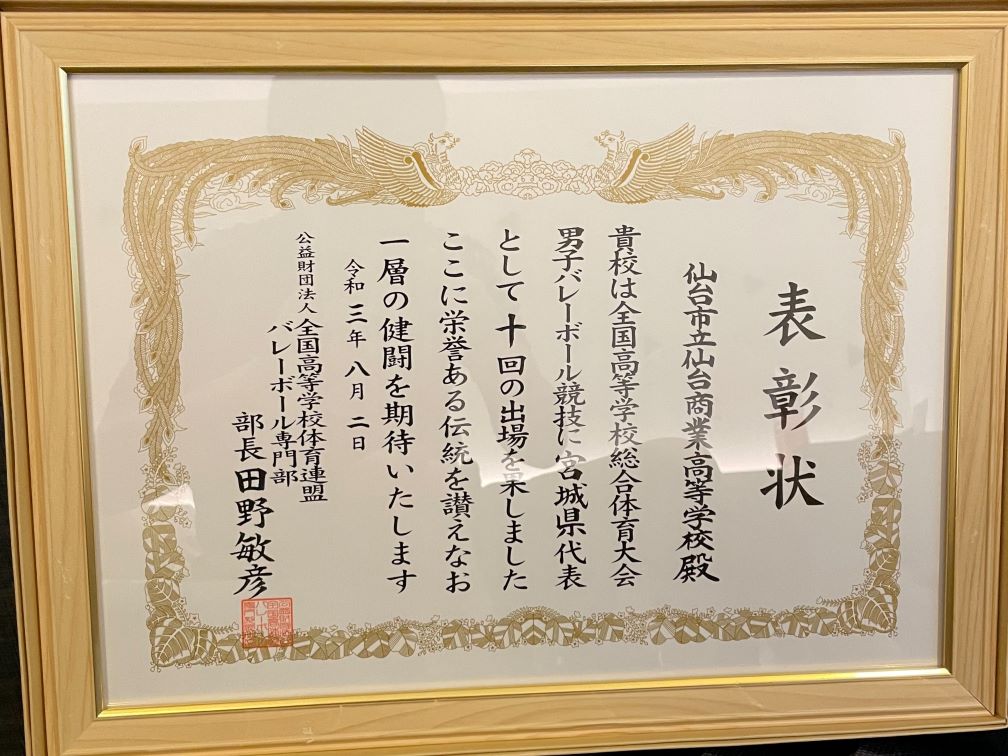 表彰状
仙台市立仙台商業高等学校殿
貴校は全国高等学校総合体育大会
男子バレーボール競技に宮城県代表
として十回の出場を果しました
ここに栄誉ある伝統を讃えなお
一層の健闘を期待いたします
令和三年八月二日
公益財団法人全国高等学校体育連盟
バレーボール専門部
部長田野敏彦